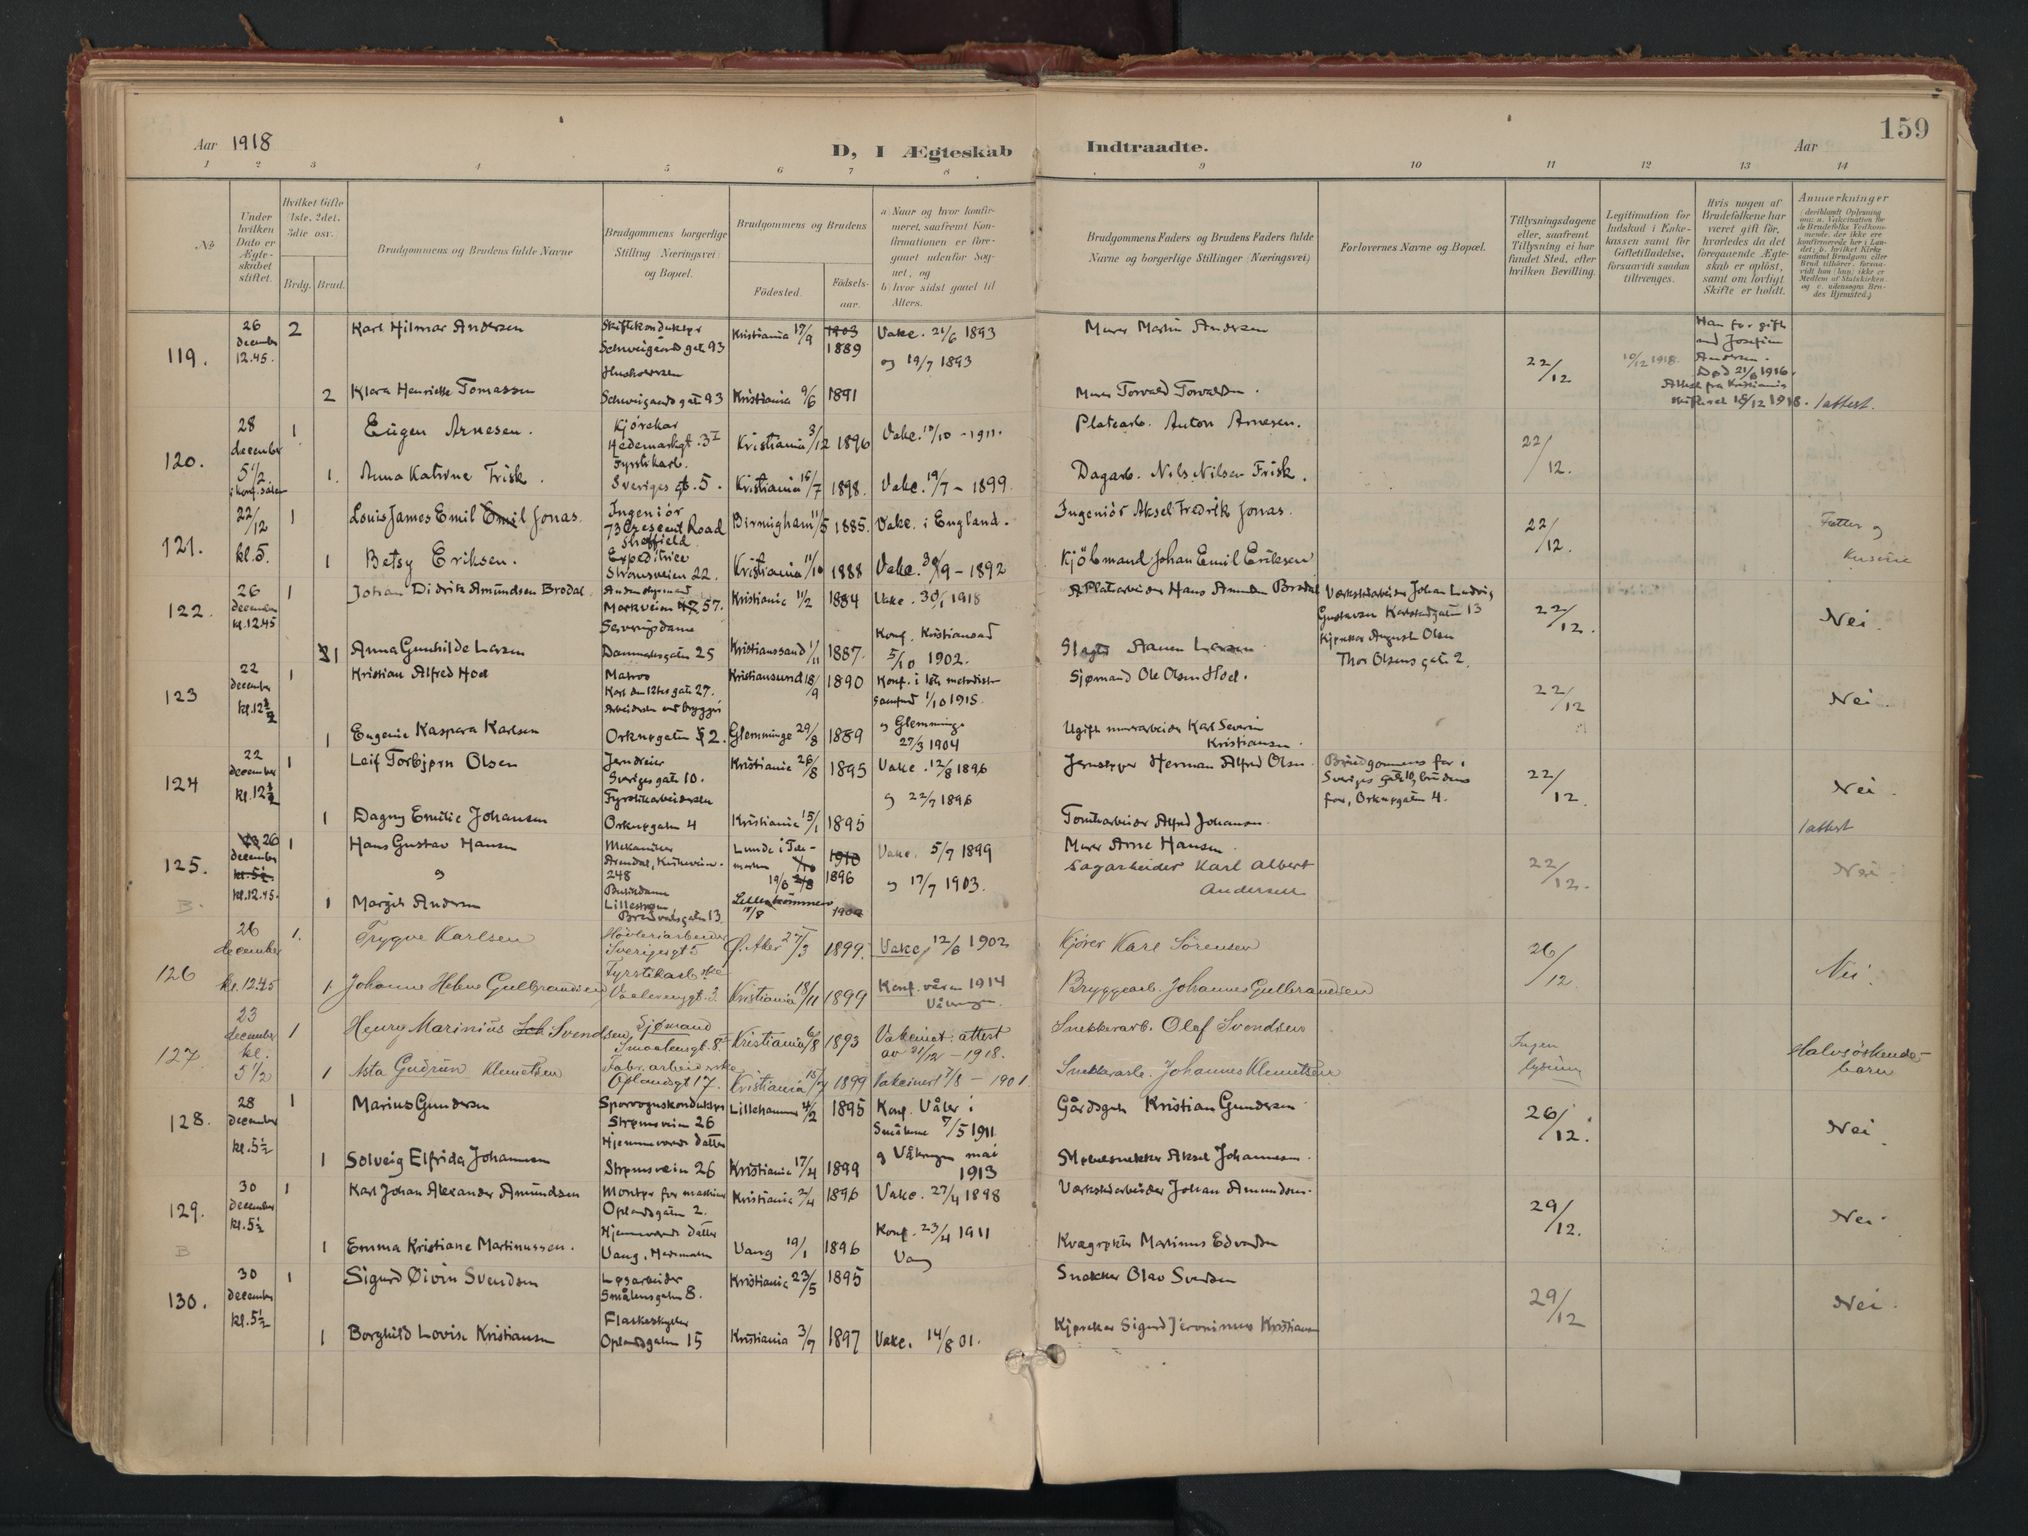 Aar 1918
D, I Ægteskab Indtraadte.
159
Aar
1 2 3 4 5 6 7 8 9 10 11 12 13 14
№
Under hvilken Dato er Ægteskabet stiftet.
Hvilket Gifte 1ste, 2det, 3die osv.
Brdg. Brud.
Brudgommens og Brudens fulde Navne
Brudgommens borgerlige Stilling (Næringsvei) og Bopæl.
Brudgommens og Brudens
Fødested.
Fødselsaar.
a) Naar og hvor konfirmeret, saafremt Konfirmationen er foregaaet udenfor Sognet, og
b) hvor sidst gaaet til Alters.
Brudgommens Faders og Brudens Faders fulde Navne og borgerlige Stillinger (Næringsvei)
Forlovernes Navne og Bopæl.
Tillysningsdagene eller, saafremt Tillysning ei har fundet Sted, efter hvilken Bevilling.
Legitimation for Indskud i Enkekassen samt for Giftetilladelse, forsaavidt saadan tiltrænges.
Hvis nogen af Brudefolkene har været gift før, hvorledes da det foregaaende Ægteskab er opløst, samt om lovligt Skifte er holdt.
Anmærkninger
119. 26 december 12.45. 2 Karl Hilmar Andersen Skiftekonduktør Schweigaards gt 93 Kristiania 17/9 1903 1889 Vakc. 21/6 1893 og 19/7 1893 Murer Martin Andersen 22/12 10/12 1918. Han før gift med Josefine Andersen. Død 21/6 1916. Attest fra Kristiania skifteret 18/12 1918. 1 attest.
2 Klara Henriette Tomassen Schweigaards gate 93 Kristiania 9/6 1891 Murer Torvald Torvaldsen.
120. 28 december 5 1/2 i konf. salen 1 Eugen Arnesen. Kjørekar Hedemarksgt. 3 I Kristiania 3/12 1896 Vakc. 10/10 - 1911. Platearb. Anton Arnesen. 22/12.
1. Anna Katrine Frisk. Fyrstikarb. Sveriges gt. 5. Kristiania 15/7 1898. Vakc. 19/7 - 1899. Dagarb. Nils Nilsen Frisk.
121. 22/12 kl. 5. 1 Louis James Emil Emil Jonas. Ingeniør 73 Crescent Road Sheffield Birmingham 11/5 1885. Vakc. i England. Ingeniør Aksel Fredrik Jonas. 22/12. Fetter og kusine
1 Betsy Eriksen. Expeditrice Strømsveien 22. Kristiania 11/10 1888 Vakc. 30/9 - 1892 Kjøbmand Johan Emil Eriksen
122. 26 december kl. 12.45 1 Johan Didrik Amundsen Brodal. Markveien 57. Kristiania 11/2 1884 Vakc. 30/1 1918 Platarbeider Hans Amundsen Brodal Verkstedarbeider Johan Ludvig Gustavsen Karlstadgaten 13 Kjørekar August Olsen Thor Olsens gate 2. 22/12. Nei.
1 Anna Gunhilde Larsen Danmarksgaten 25 Kristianssand 1/11 1887. Konf. Kristiansad 5/10 1902.
123 22 december kl. 12 1/2 1 Kristian Alfred Hoel Matros Karl den 12tes gate 27. Kristiansund 18/9 1890 Konf. i 1ste metodistsamfund 1/10 1915. Sjømand Ole Olsen Hoel. 22/12 Nei.
1 Eugenie Kaspara Karlsen Arbeiderske ved bryggeri Orknøgaten 2. Glemminge 29/8 1889 og Glemminge 27/3 1904 Ugift murarbeider Karl Severin Kristiansen.
124 22 december kl. 12 1/2 1 Leif Torbjørn Olsen Jerndreier Sverigesgaten 10. Kristiania 26/8 1895 Vakc. 12/8 1896 og 22/7 1896 Herman Alfred Olsen Brudgommens far, Sveriges gate 10, brudens far, Orknøgaten 4. 22/12. Nei.
1 Dagny Emilie Johansen Fyrstikarbeiderske Orknøgaten 4 Kristiania 15/1 1895 Tomtearbeider Alfred Johansen. 1 attest
125. 26 december kl. 5 1/2. kl. 12.45. 1 Hans Gustav Hansen Mekaniker Arendal, 248 Lunde i Telemarken 19/6 1910 1896 Vakc. 5/7 1899 og 17/7 1903. Murer Arne Hansen. 22/12. Nei.
B. 1 Margit Andersen Lillestrøm Bredvedsgaten 13 18/8 1902 Sagarbeider Karl Albert Andersen
126 26 december kl. 12.45 1. Trygve Karlsen Høvleriarbeider Sverigesgt 5 Ø. Aker 27/3 1899. Vakc. 12/6 1902 Kjører Karl Sørensen 26/12. Nei
1. Johanne Helene Gulbrandsen Fyrstikarb.ske Vaalerenggt. 3. Kristiania 18/11 1899 Konf. våren 1914 Vålerengen. Bryggearb. Johannes Gulbrandsen
127. 23 december kl. 5 1/2 1 Henry Marinius Svendsen Sjømand Smaalensgt. 8 Kristiania 6/8 1893 Vakcinat. attest av 21/12 - 1918. Snekkerarb. Olaf Svendsen Ingen lysning Halvsøskendebarn
1 Asta Gudrun Klemetsen Fabr. arbeiderske Oplandsgt 17. Kristiania 15/7 1899 Vakcinert 7/8 - 1901. Snekkerarb. Johannes Klemetsen
128. 28 december kl. 5 1/2 1 Marius Gundersen Sporvognskonduktør Strømsveien 26 Lillehammer 4/2 1895 Konf. Våler i Småalene 7/5 1911 og Vålerengen mai 1913 Gårdsgut Kristian Gundersen 26/12. Nei
1 Solveig Elfrida Johannesen Hjemmeværende datter Strømsveien 26 Kristiania 17/4 1899 Møbelsnekker Aksel Johannesen.
129. 30 december kl. 5 1/2 1 Karl Johan Alexander Amundsen Montør for maskiner Oplandsgaten 2. Kristiania 2/4 1896 Vakc. 27/4 1898 Verkstedarbeider Johan Amundsen. 29/12. Nei.
B 1 Emma Kristiane Martinussen. Hjemmeværende datter Vang, Hedmarken Vang 19/1 1896 Konf. 23/4 1911 Vang Kvægrøkter Martinus Edvardsen
130. 30 december kl. 5 1/2 1 Sigurd Øivin Svendsen Løsarbeider Smålensgaten 8. Kristiania 23/5 1895 Snekker Olav Svendsen 29/12 Nei.
1 Borghild Lovise Kristiansen Flaskeskyller Oplandsgaten 15 Kristiania 3/7 1897 Vakc. 14/8 01. Kjørekar Sigurd Jeronimus Kristiansen